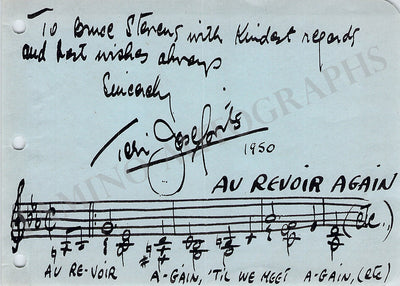 To Bruce Stevens with Kindest regards
and best wishes always
Sincerely
Teri Josefovits
1950
AU REVOIR AGAIN
(etc..)
AU RE-VOIR A-GAIN, 'TIL WE MEET A-GAIN, (etc)